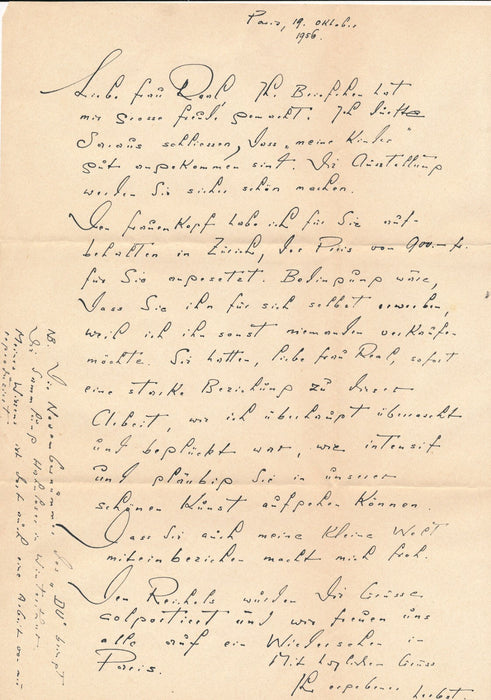 Paris, 19. Oktober
1956.
Liebe Frau Real, Ihr Briefchen hat
mir grosse Freude gemacht. Ich dürfte
daraus schliessen, dass „meine Kinder"
gut angekommen sind. Die Ausstellung
werden Sie sicher schön machen.
Den Frauenkopf habe ich für Sie auf-
behalten in Zürich, der Preis von 900.— fr.
für Sie angesetzt. Bedingung wäre,
dass Sie ihn für sich selbst erwerben,
weil ich ihn sonst niemanden verkaufen
möchte. Sie hatten, liebe Frau Real, sofort
eine starke Beziehung zu dieser
Arbeit, wie ich überhaupt überrascht
und beglückt war, wie intensiv
und gläubig Sie in unserer
schönen Kunst aufgehen können.
Dass Sie auch meine kleine Welt
miteinbeziehen macht mich froh.
Den Reichels würden die Grüsse
colportiert und wir freuen uns
alle auf ein Wiedersehen in
Paris. Mit herzlichen Grüssen
Ihr ergebener
NB. Die Novembernummer des „DU" bringt
Die Sammlung Hahnloser in Winterthur.
Meines Wissens ist dort auch eine Arbeit von mir
reproduziert.